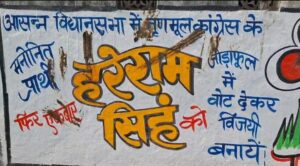 आसन्न विधानसभा में तृणमूल कांग्रेस के
मनोनित
प्रार्थी
हरेराम
सिहं
को
फिर एकबार
जोड़ाफूल
में
वोट देकर
विजयी
बनाये